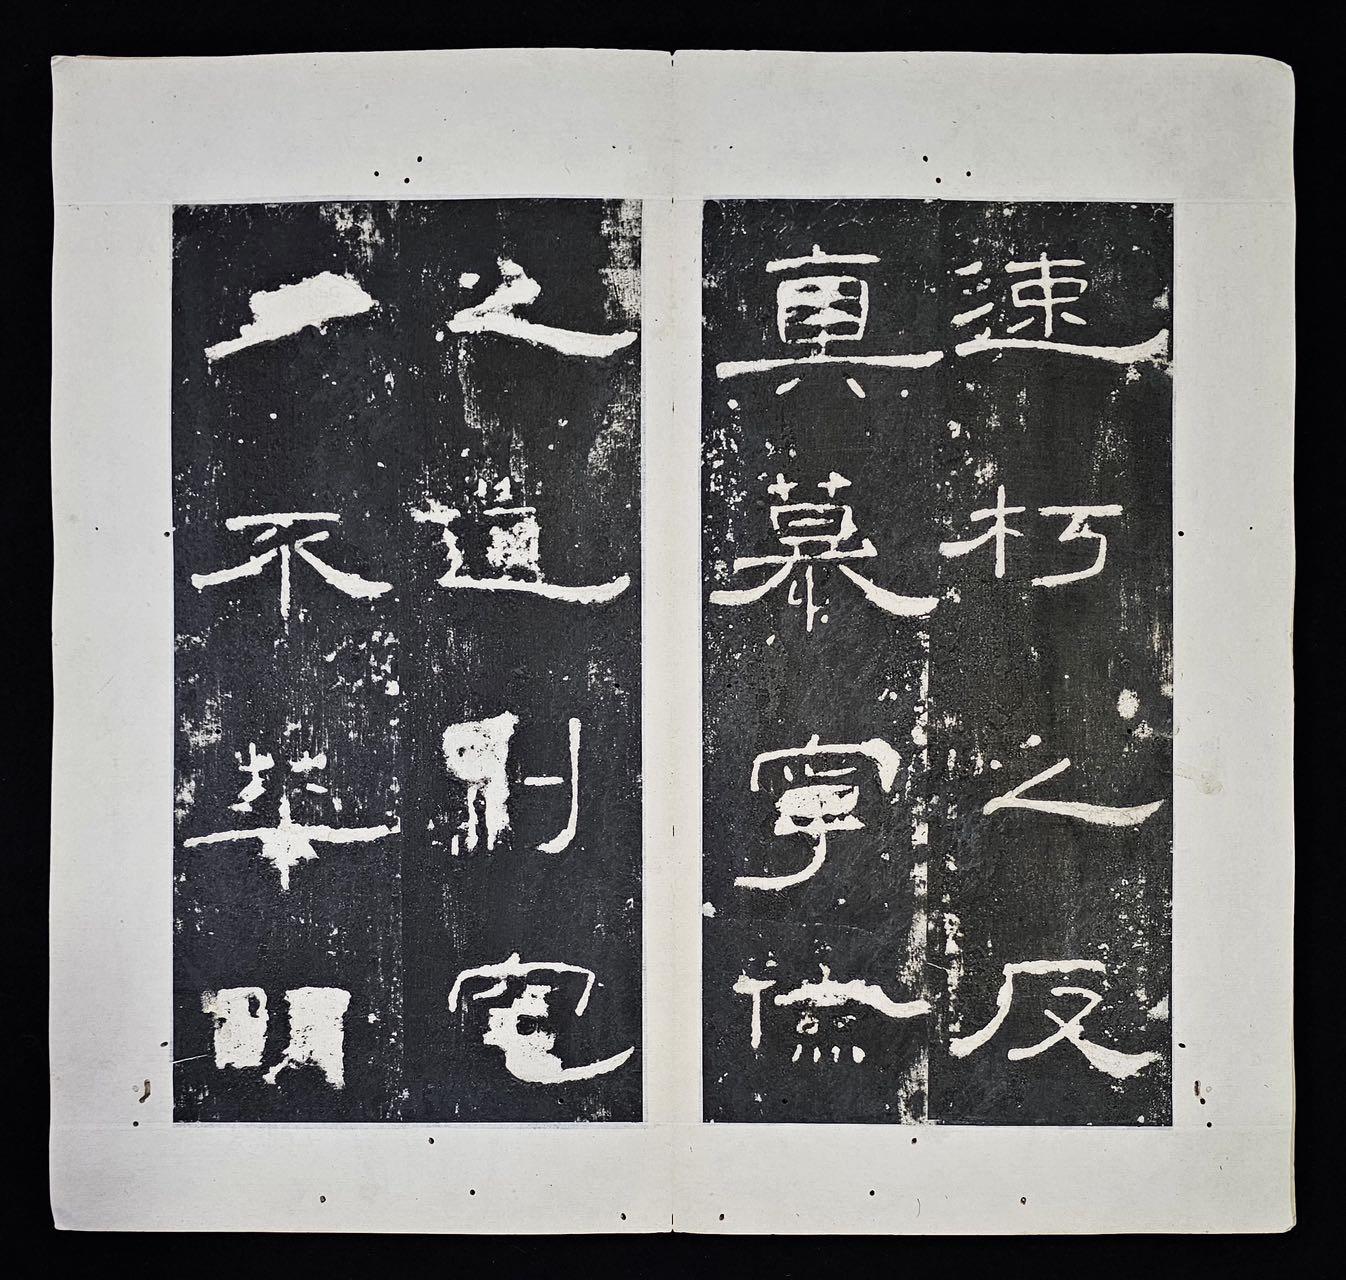 速朽之反
真慕寧儉
之遺則窀
夕不華明